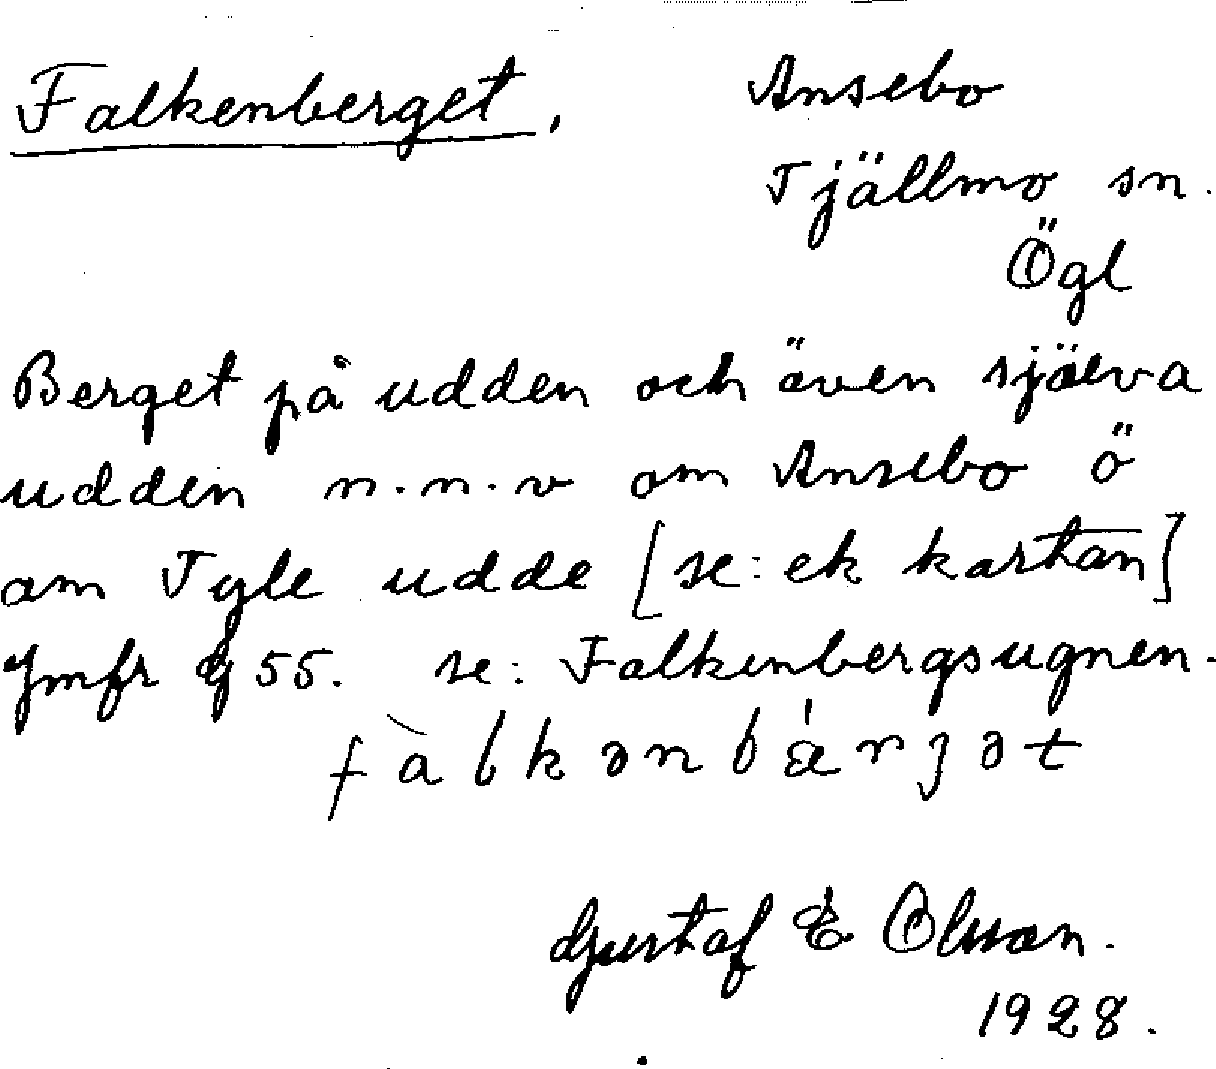 Falkenberget, Ansebo
Tjällmo sn.
Ögl
Berget på udden och även själva
udden n.n.v om Ansebo ö
om Tyle udde [se: ek kartan]
Jmfr § 55. se: Falkenbergsugnen.
fàlkənbǽrjət
Gustaf E Olsson.
1928.